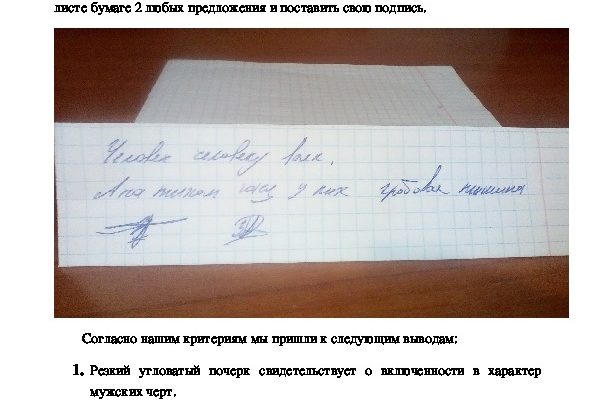 листе бумаге 2 любых предложения и поставить свою подпись.
Человек человеку волк.
А на тихом у них гробовая тишина
Согласно нашим критериям мы пришли к следующим выводам:
1. Резкий угловатый почерк свидетельствует о включенности в характер
мужских черт.